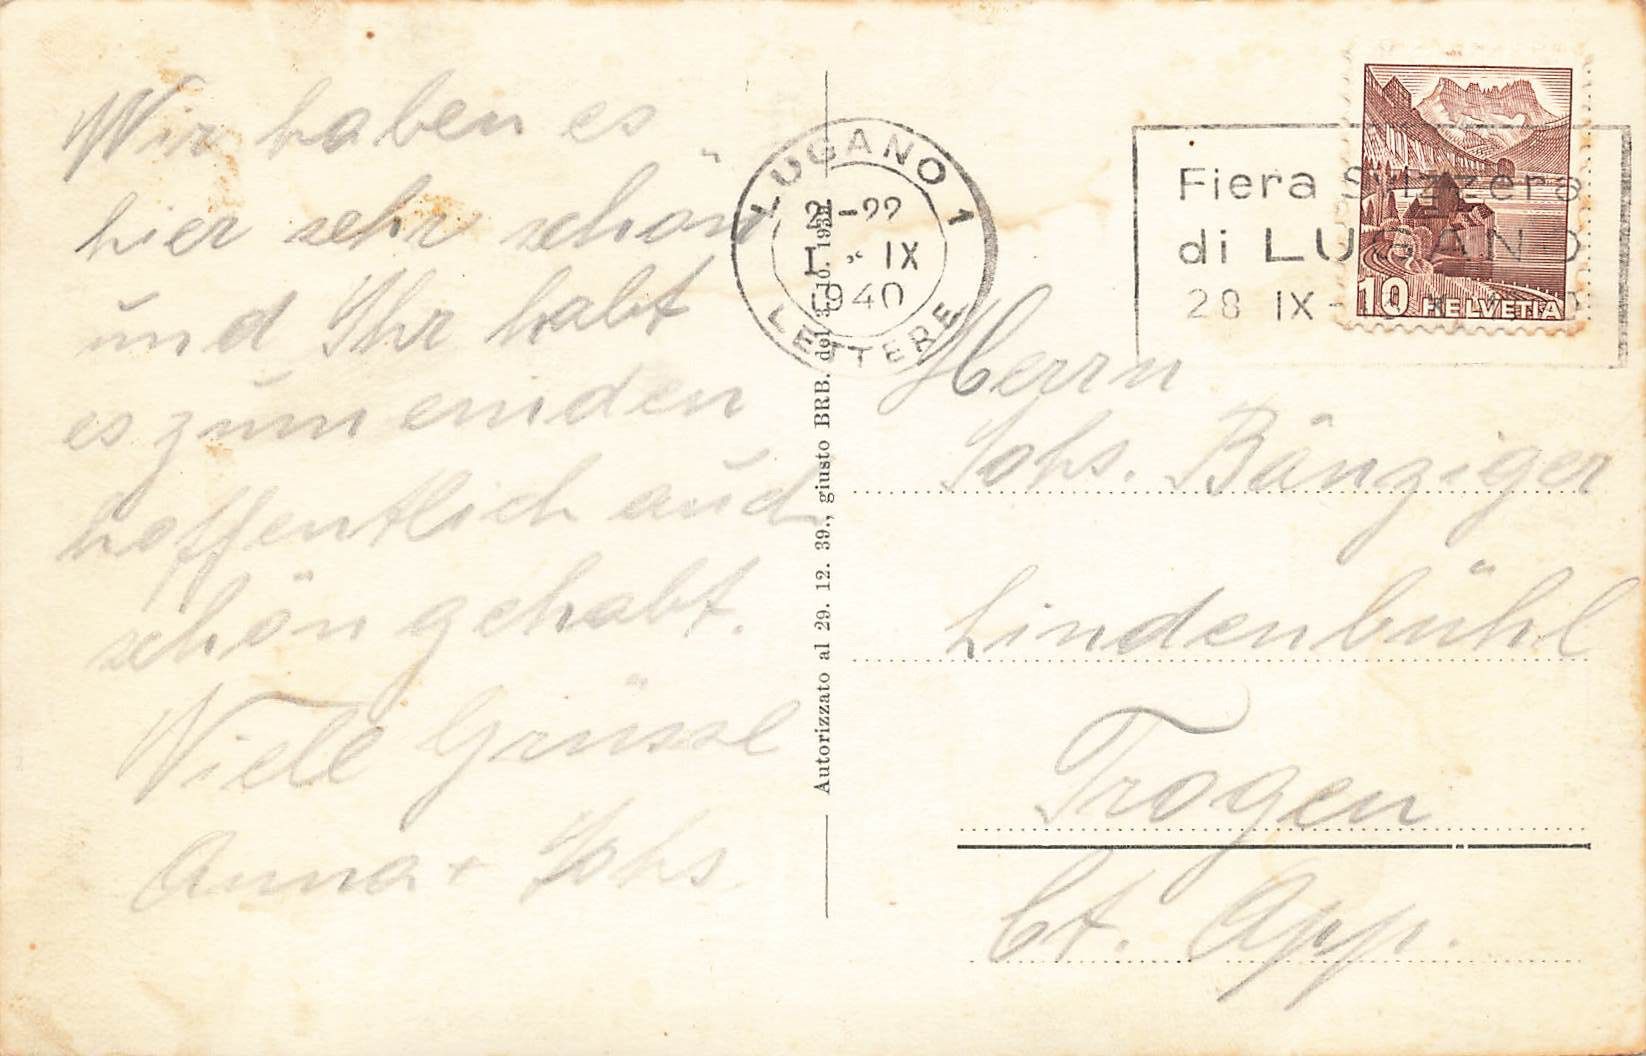 Wir haben es
hier sehr schön
und Ihr habt
es zum einden
hoffentlich auch
schön gehabt.
Viele Grüsse
Anna + Johs
Autorizzato al 29. 12. 39., giusto BRB. del 3. 10. 1939
LUGANO 1
-22
1 * IX
1940
LETTERE
Fiera Svizzera
di LUGANO
28 IX -
10 HELVETIA
Herrn
Johs. Bänziger
Lindenbühl
Trogen
Ct. App.